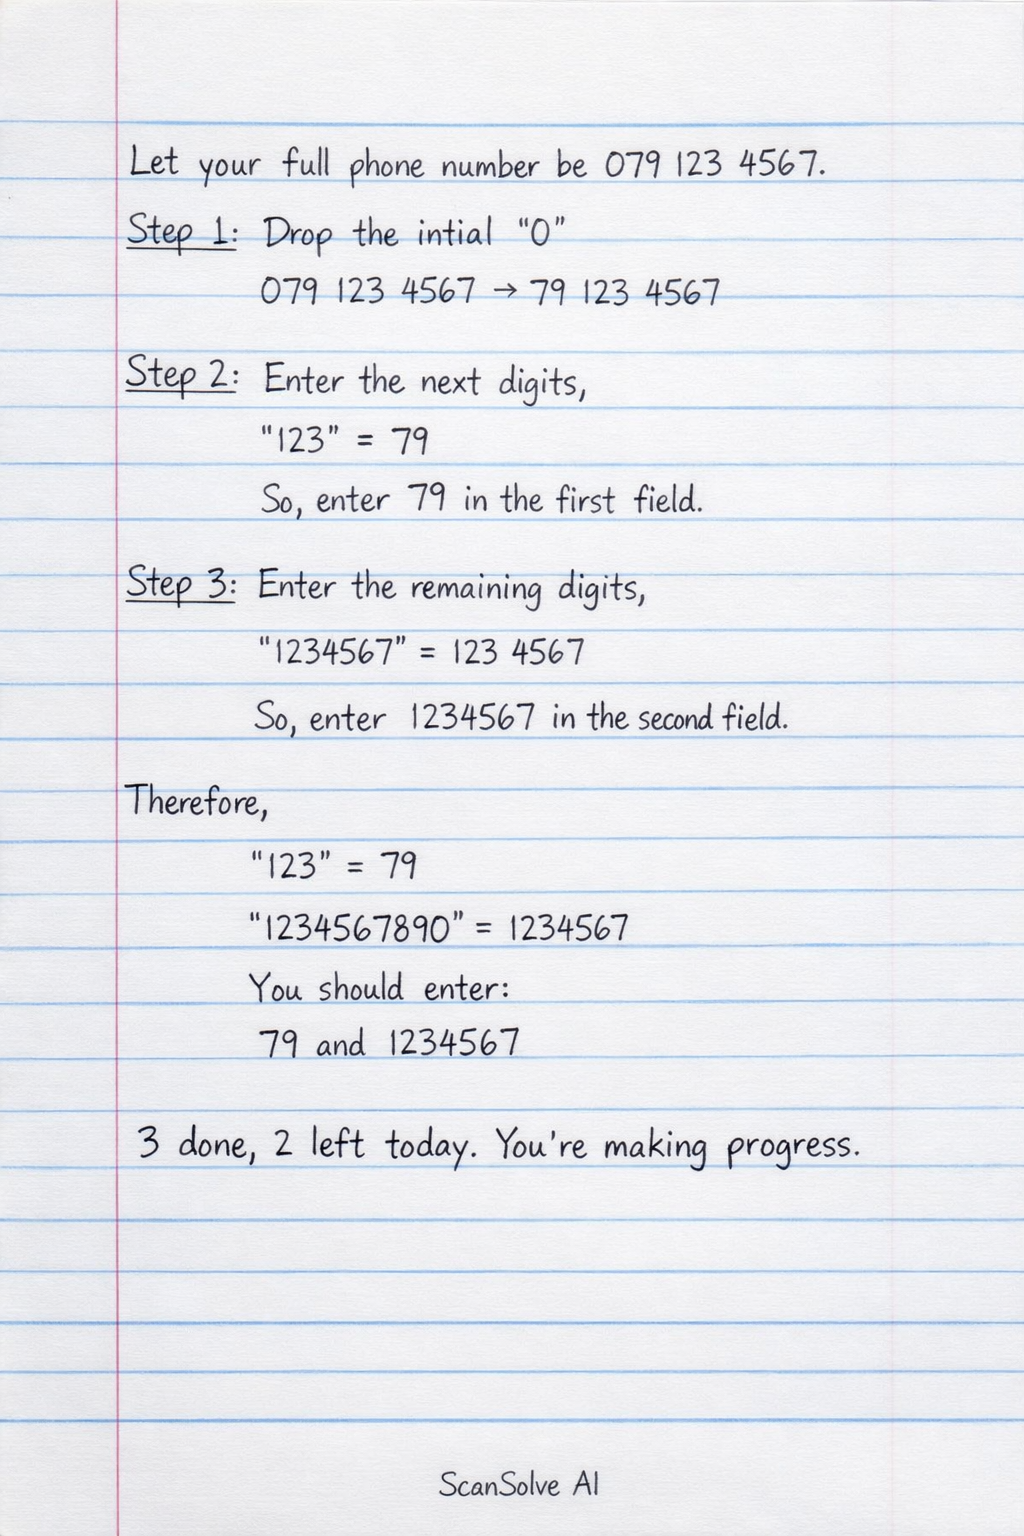 Let your full phone number be 079 123 4567.
Step 1: Drop the intial "0"
079 123 4567 → 79 123 4567
Step 2: Enter the next digits,
"123" = 79
So, enter 79 in the first field.
Step 3: Enter the remaining digits,
"1234567" = 123 4567
So, enter 1234567 in the second field.
Therefore,
"123" = 79
"1234567890" = 1234567
You should enter:
79 and 1234567
3 done, 2 left today. You're making progress.
ScanSolve AI